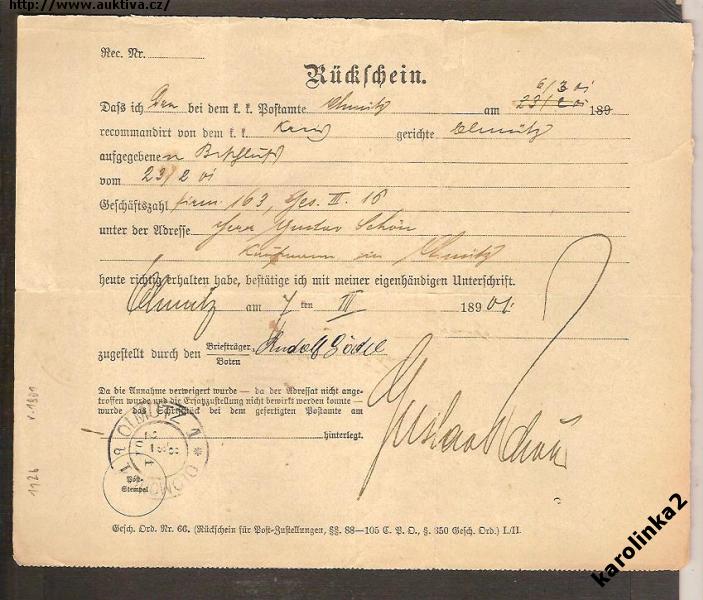 http://www.auktiva.cz/
Rec. Nr.
Rückschein.
6/3 01
Daß ich Den bei dem k. k. Postamte Olmütz am 23/2 01 189
recommandirt von dem k. k. Kreis gerichte Olmütz
aufgegebenen Beschluß
vom 23/2 01
Geschäftszahl firm. 163, Ges. II. 16
unter der Adresse Herr Gustav Schön
Kaufmann in Olmütz
heute richtig erhalten habe, bestätige ich mit meiner eigenhändigen Unterschrift.
Olmütz am 7 ten III 1890 01.
zugestellt durch den Briefträger Rudolf Gödel
Boten
Da die Annahme verweigert wurde — da der Adressat nicht ange-
troffen wurde und die Ersatzzustellung nicht bewirkt werden konnte —
wurde das Schriftstück bei dem gefertigten Postamte am
hinterlegt.
Gustav Schön
OLMÜTZ 1
OLOMOUC 1
Post-
Stempel
v. 1901
1126
Gesch. Ord. Nr. 66. (Rückschein für Post-Zustellungen, §§. 88—105 C. P. O., §. 350 Gesch. Ord.) I./II.
karolinka2